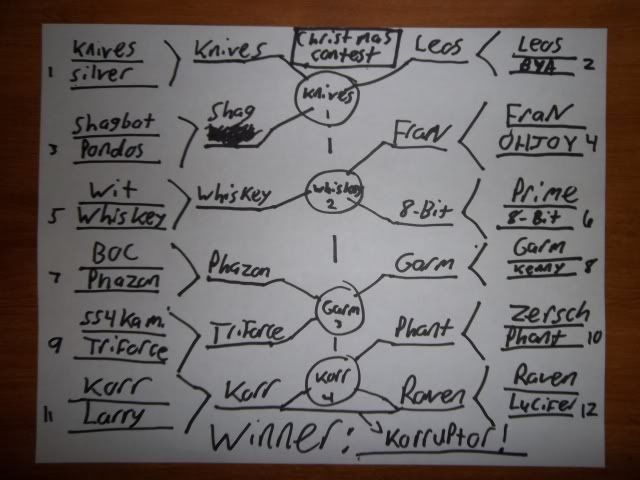 Christmas
contest
Knives
1 silver
Knives
Leos
Leos
BYA 2
Knives
1
Shagbot
3 Pondos
Shag
EraN
EraN
OHJOY 4
Wit
5 Whiskey
Whiskey
Whiskey
2
8-Bit
Prime
8-Bit 6
BOC
7 Phazon
Phazon
Garm
Garm
Kenny 8
Garm
3
SS4Kam.
9 Triforce
Triforce
Phant
Zersch
Phant 10
Korr
11 Larry
Korr
Korr
4
Raven
Raven
Lucifer 12
Winner: Korruptor!